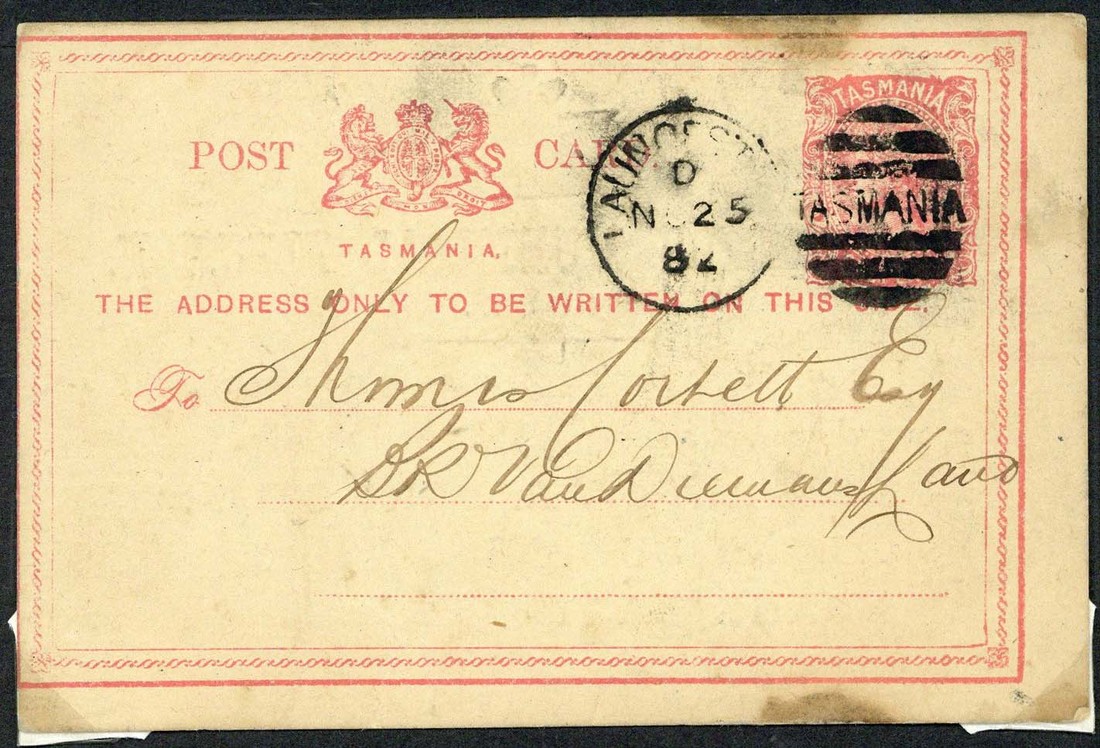 POST CARD
TASMANIA.
TASMANIA
LAUNCEST
D
NO 25
82
TASMANIA
THE ADDRESS ONLY TO BE WRITTEN ON THIS SIDE.
To Thomas Corbett Esq
Bk Van Diemans Land